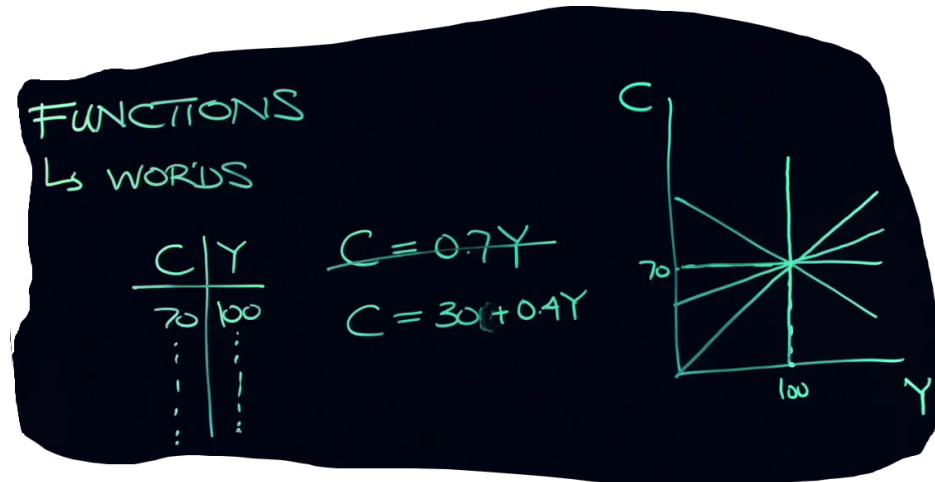 FUNCTIONS
↳ WORDS
C | Y
70 | 100
C = 0.7Y
C = 30 + 0.4Y
C
70
100
Y